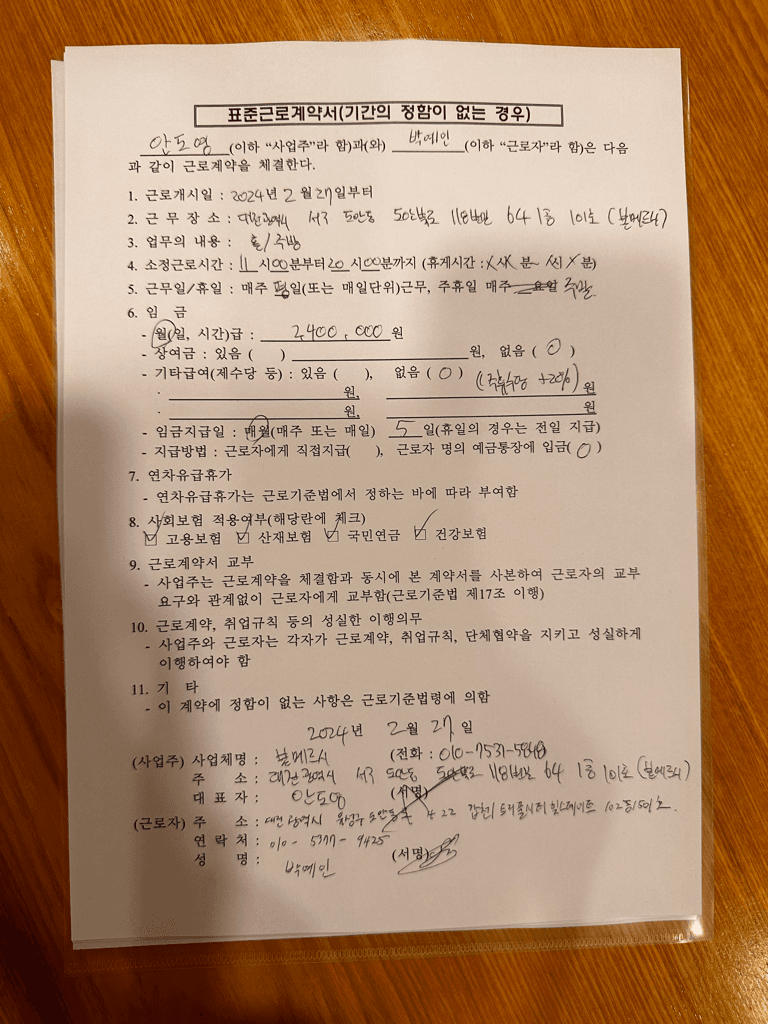 표준근로계약서(기간의 정함이 없는 경우)
안도영 (이하 “사업주”라 함)과(와) 박예인 (이하 “근로자”라 함)은 다음
과 같이 근로계약을 체결한다.
1. 근로개시일 : 2024년 2월 27일부터
2. 근 무 장 소 : 대전광역시 서구 도안동 도안북로 118번길 64 1층 101호 (봉메르시)
3. 업무의 내용 : 홀/주방
4. 소정근로시간 : 11시00분부터 20시00분까지 (휴게시간 : X시X분~ 시X분)
5. 근무일/휴일 : 매주 평일(또는 매일단위)근무, 주휴일 매주 요일 주말
6. 임 금
- 월(일, 시간)급 : 2,400,000 원
- 상여금 : 있음 ( ) 원, 없음 ( O )
- 기타급여(제수당 등) : 있음 ( ), 없음 ( O ) (주휴수당 +20%)
· 원, 원
· 원, 원
- 임금지급일 : 매월(매주 또는 매일) 5 일(휴일의 경우는 전일 지급)
- 지급방법 : 근로자에게 직접지급( ), 근로자 명의 예금통장에 입금( O )
7. 연차유급휴가
- 연차유급휴가는 근로기준법에서 정하는 바에 따라 부여함
8. 사회보험 적용여부(해당란에 체크)
☑ 고용보험 ☑ 산재보험 ☑ 국민연금 ☑ 건강보험
9. 근로계약서 교부
- 사업주는 근로계약을 체결함과 동시에 본 계약서를 사본하여 근로자의 교부
요구와 관계없이 근로자에게 교부함(근로기준법 제17조 이행)
10. 근로계약, 취업규칙 등의 성실한 이행의무
- 사업주와 근로자는 각자가 근로계약, 취업규칙, 단체협약을 지키고 성실하게
이행하여야 함
11. 기 타
- 이 계약에 정함이 없는 사항은 근로기준법령에 의함
2024년 2월 27일
(사업주) 사업체명 : 봉메르시 (전화 : 010-7531-5848
주 소 : 대전광역시 서구 도안동 도안북로 118번길 64 1층 101호 (봉메르시)
대 표 자 : 안도영 (서명)
(근로자) 주 소 : 대전광역시 유성구 도안동로 422 갑천1트리풀시티힐스테이트 102동1501호.
연 락 처 : 010-5377-9425
성 명 : 박예인 (서명)